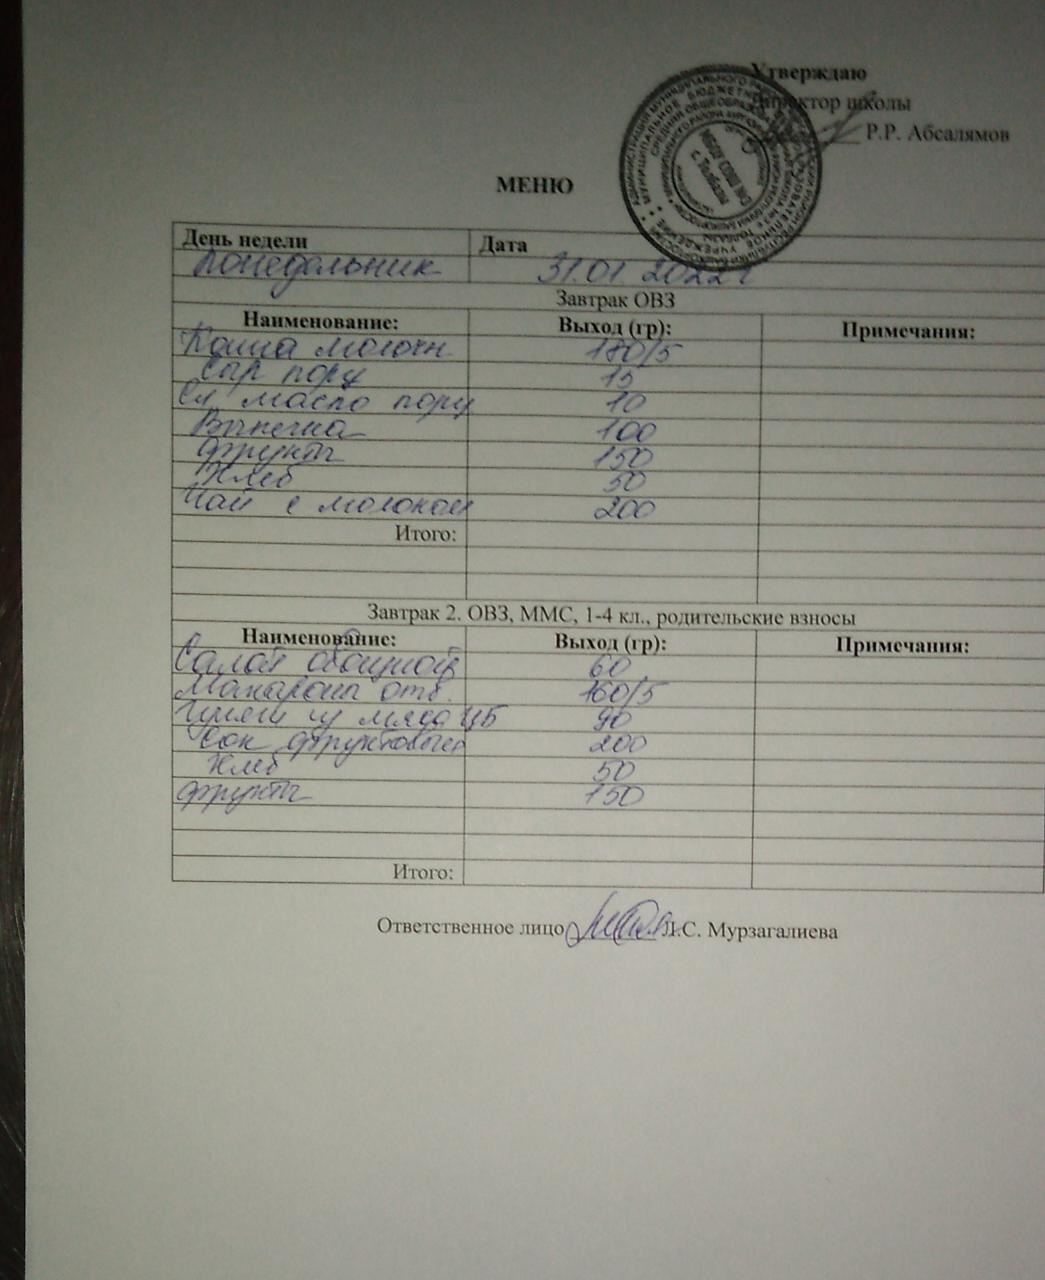 Утверждаю
Директор школы
Р.Р. Абсалямов
МЕНЮ
День недели Дата
Понедельник 31.01.2022 г
Завтрак ОВЗ
Наименование: Выход (гр): Примечания:
Каша молочн 180/5
Сыр порц 15
Сл масло порц 10
Выпечка 100
Фрукты 150
Хлеб 50
Чай с молоком 200
Итого:
Завтрак 2. ОВЗ, ММС, 1-4 кл., родительские взносы
Наименование: Выход (гр): Примечания:
Салат овощной 60
Макароны отв. 160/5
мяса ЦБ 90
Сок фруктовый 200
Хлеб 50
Фрукты 150
Итого:
Ответственное лицо Л.С. Мурзагалиева